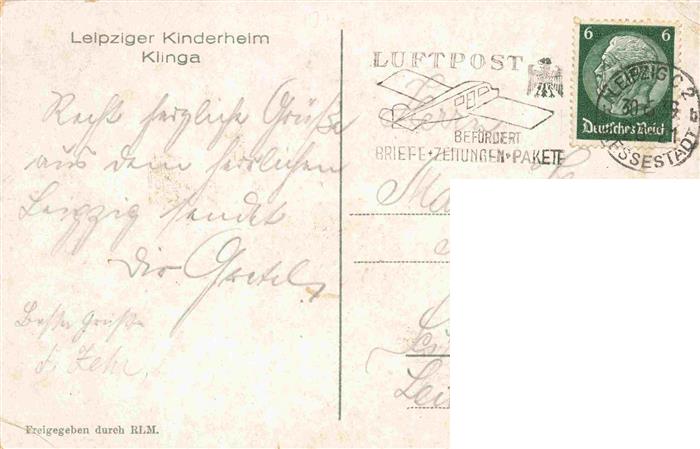 Leipziger Kinderheim
Klinga
Recht herzliche Grüße
aus dem herrlichen
Leipzig sendet
Dir Gretel
Beste Grüße
F. Zehr.
Freigegeben durch RLM.
LUFTPOST
BEFÖRDERT
BRIEFE+ZEITUNGEN+PAKETE
6 6
Deutsches Reich
LEIPZIG C 2
MESSESTADT
Herrn